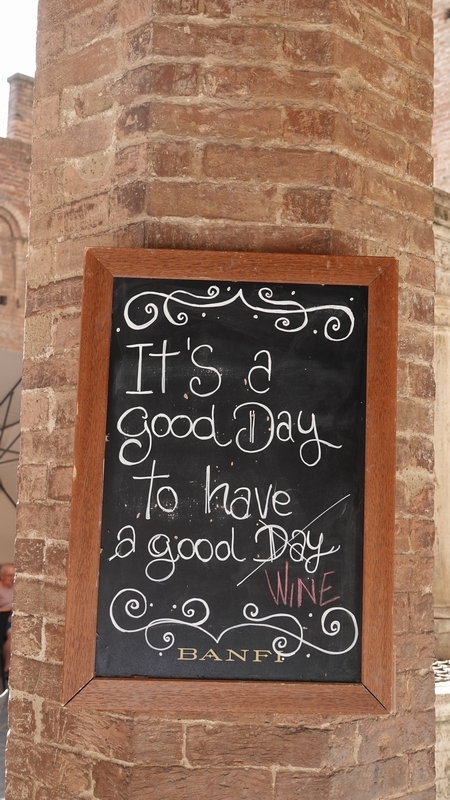 It's a
good Day
to have
a good Day
WINE
BANFI